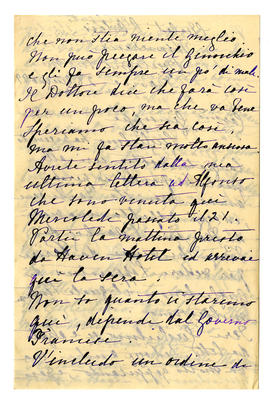 che non stia mente meglio
Non può piegare il Ginocchio
e gli fa sempre un pó di male
Il Dottore dice che farà così
per un poco ma che va bene
Speriamo che sea così,
ma mi fa stare molto ansiosa
Avrete sentito dalla mia
ultima lettera ad Alfonso
che sono venuta qui
Mercoledi passato il 21.
Partii la mattina presto
da Haven Hotel ed arrivai
qui la sera.
Non so quanto ci staremo
qui, depende dal Governo
Francese.
V'includo un ordine di